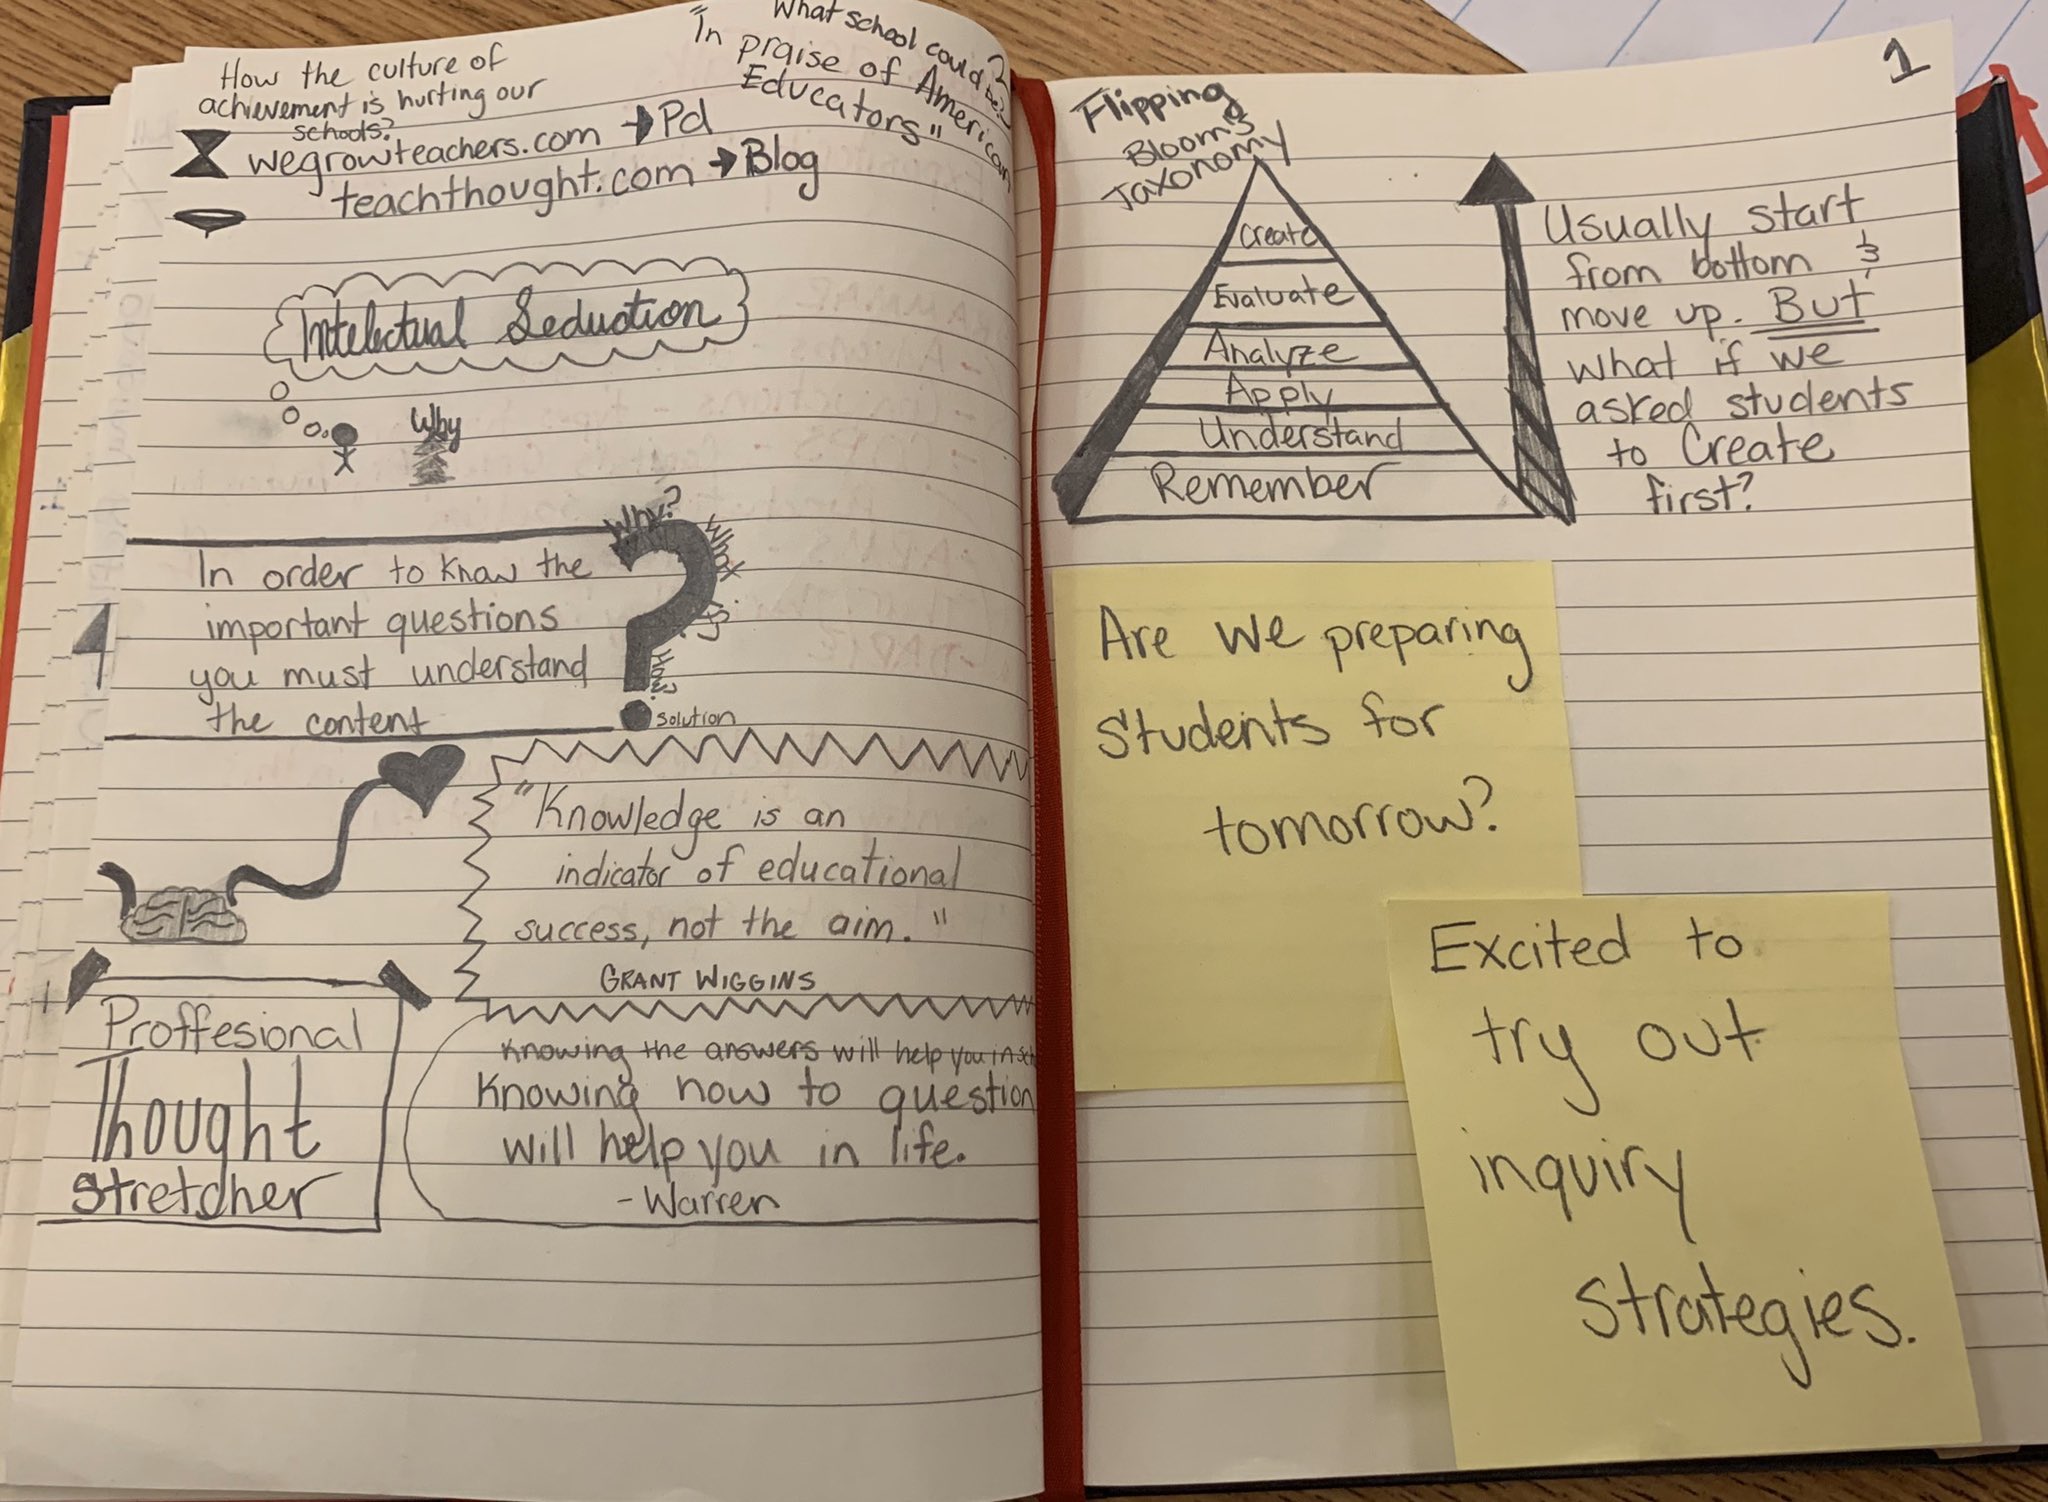 How the culture of
achievement is hurting our
schools?
wegrowteachers.com → Pd
teachthought.com → Blog
What school could be?
"In praise of American
Educators"
Intelectual Seduction
Why
Why?
In order to know the
important questions
you must understand
the content
How?
solution
"Knowledge is an
indicator of educational
success, not the aim."
GRANT WIGGINS
Proffesional
Thought
Stretcher
Knowing the answers will help you in
Knowing how to question
will help you in life.
-Warren
1
Flipping
Bloom's
Taxonomy
Create
Evaluate
Analyze
Apply
Understand
Remember
Usually start
from bottom &
move up. But
what if we
asked students
to Create
first?
Are we preparing
students for
tomorrow?
Excited to
try out
inquiry
strategies.